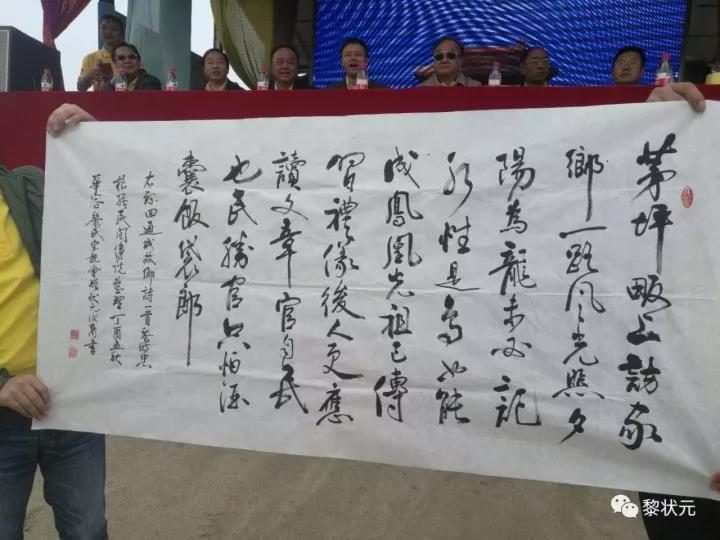 茅坪畈上訪家
鄉一路风光照夕
陽為龍未必記
水性是鳥也能
成鳳凰先祖已傳
習禮儀後人更應
讀文章官自民
也民勝官只怕酒
囊飯袋郎
右録回通城故鄉詩一首黎時忠
根據民間傳说整理丁酉孟秋
華容黎氏宗親會黎狀元書
黎状元